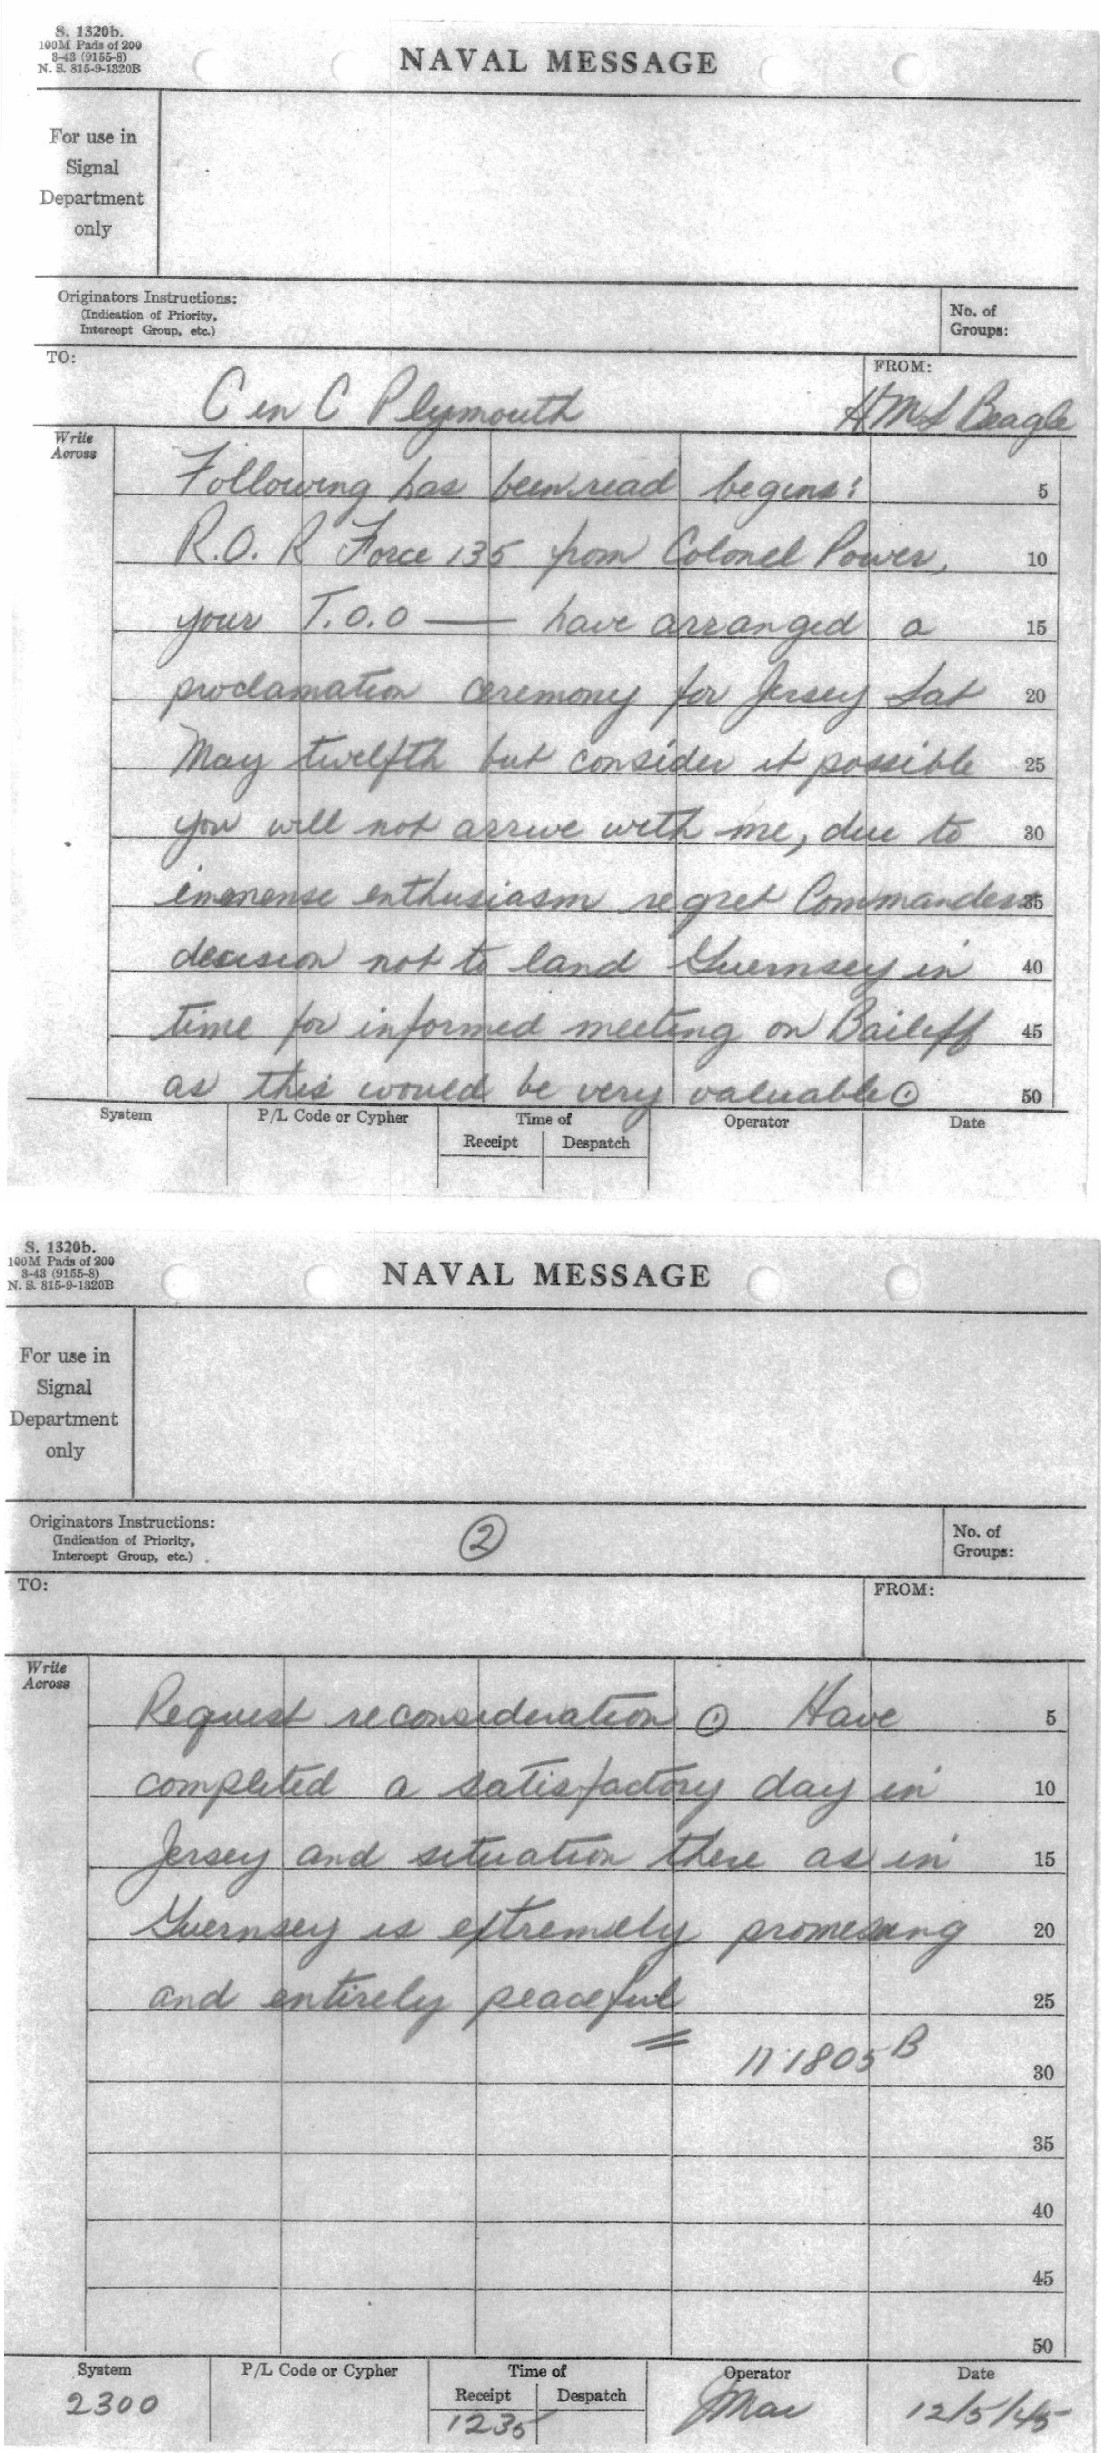 S. 1320b.
100M Pads of 200
3-43 (9155-8)
N. S. 815-9-1320B
NAVAL MESSAGE
For use in
Signal
Department
only
Originators Instructions:
(Indication of Priority,
Intercept Group, etc.)
No. of
Groups:
TO:
FROM:
C in C Plymouth
HMS Beagle
Write
Across
Following has been read begins: 5
R.O.R Force 135 from Colonel Power, 10
your T.O.O — have arranged a 15
proclamation ceremony for Jersey Sat 20
May twelfth but consider it possible 25
you will not arrive with me, due to 30
immense enthusiasm regret Commanders 35
decision not to land Guernsey in 40
time for informed meeting on Bailiff 45
as this would be very valuable ⊙ 50
System
P/L Code or Cypher
Time of
Receipt
Despatch
Operator
Date
S. 1320b.
100M Pads of 200
3-43 (9155-8)
N. S. 815-9-1320B
NAVAL MESSAGE
For use in
Signal
Department
only
Originators Instructions:
(Indication of Priority,
Intercept Group, etc.)
②
No. of
Groups:
TO:
FROM:
Write
Across
Request reconsideration ⊙ Have 5
completed a satisfactory day in 10
Jersey and situation there as in 15
Guernsey is extremely promising 20
and entirely peaceful 25
= 111805B 30
35
40
45
50
System
P/L Code or Cypher
Time of
Receipt
Despatch
Operator
Date
2300
1235
Mac
12/5/45